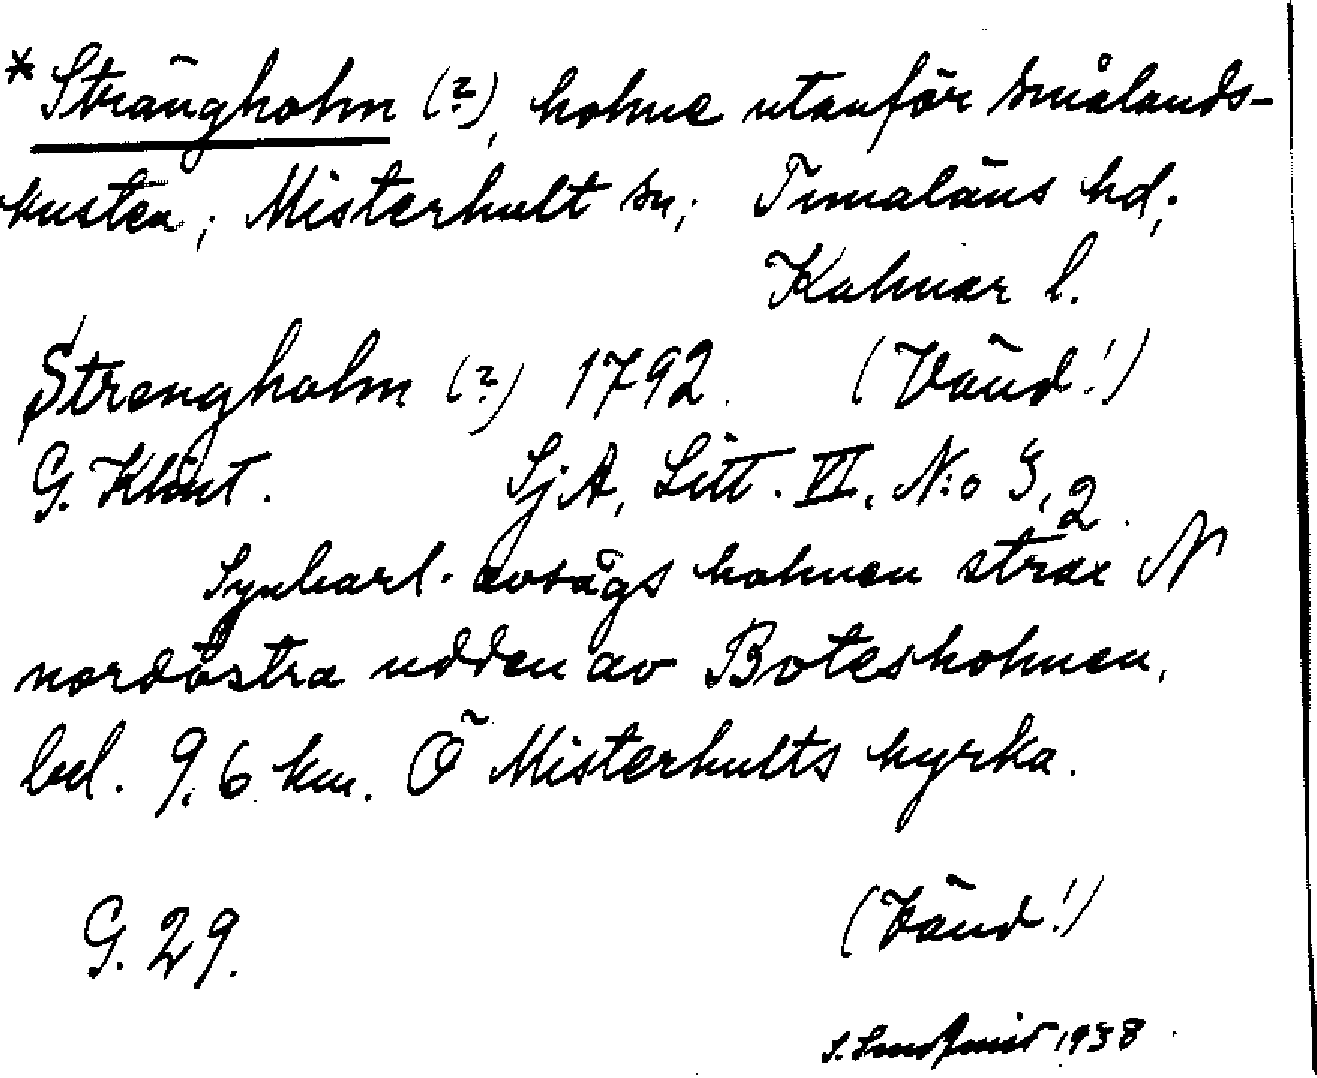 * Strängholm (?), holme utanför Smålands-
kusten; Misterhult sn; Tunaläns hd;
Kalmar l.
Strengholm (?) 1792. (Vänd!)
G. Klint. SjA, Litt. VI, N:o 3, 2.
Synbarl. avsågs holmen strax N
nordöstra udden av Botesholmen,
bel. 9,6 km. Ö Misterhults kyrka.
G. 29. (Vänd!)
1938